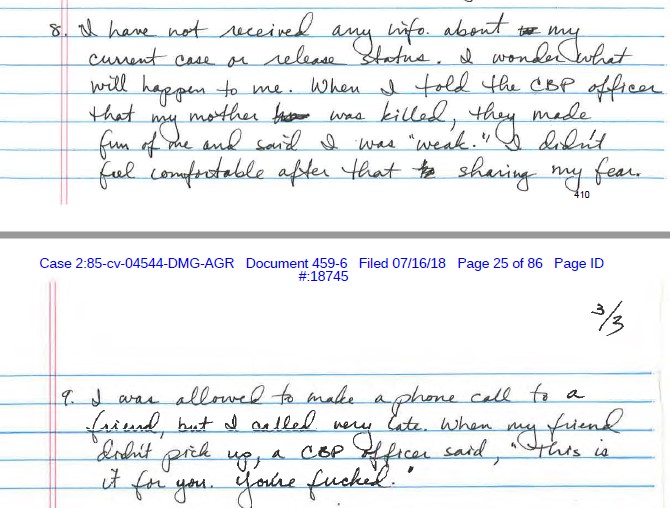 8. I have not received any info. about my
current case or release status. I wonder what
will happen to me. When I told the CBP officer
that my mother was killed, they made
fun of me and said I was "weak." I didn't
feel comfortable after that sharing my fear.
410
Case 2:85-cv-04544-DMG-AGR Document 459-6 Filed 07/16/18 Page 25 of 86 Page ID
#:18745
3/3
9. I was allowed to make a phone call to a
friend, but I called very late. When my friend
didn't pick up, a CBP officer said, "this is
it for you. You're fucked."